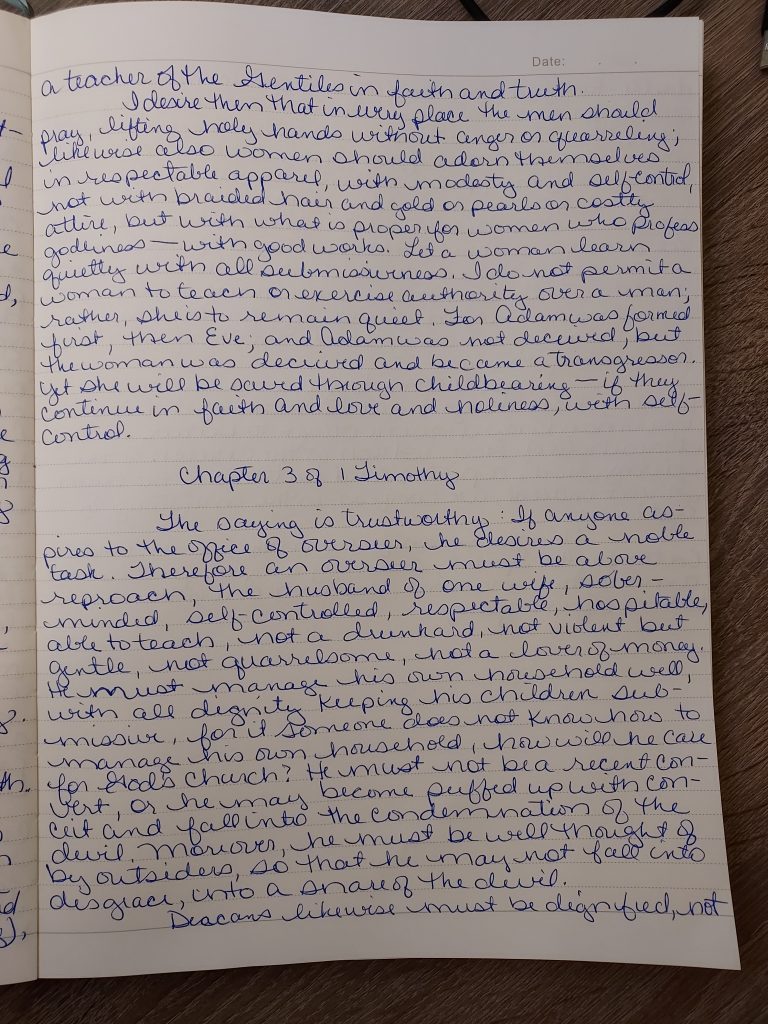 Date: . .
a teacher of the Gentiles in faith and truth.
I desire then that in every place the men should
pray, lifting holy hands without anger or quarreling;
likewise also women should adorn themselves
in respectable apparel, with modesty and self-control,
not with braided hair and gold or pearls or costly
attire, but with what is proper for women who profess
godliness — with good works. Let a woman learn
quietly with all submissiveness. I do not permit a
woman to teach or exercise authority over a man;
rather, she is to remain quiet. For Adam was formed
first, then Eve; and Adam was not deceived, but
the woman was deceived and became a transgressor.
Yet she will be saved through childbearing — if they
continue in faith and love and holiness, with self-
control.
Chapter 3 of 1 Timothy
The saying is trustworthy: If anyone as-
pires to the office of overseer, he desires a noble
task. Therefore an overseer must be above
reproach, the husband of one wife, sober-
minded, self-controlled, respectable, hospitable,
able to teach, not a drunkard, not violent but
gentle, not quarrelsome, not a lover of money.
He must manage his own household well,
with all dignity keeping his children sub-
missive, for if someone does not know how to
manage his own household, how will he care
for God's church? He must not be a recent con-
vert, or he may become puffed up with con-
ceit and fall into the condemnation of the
devil. Moreover, he must be well thought of
by outsiders, so that he may not fall into
disgrace, into a snare of the devil.
Deacans likewise must be dignified, not